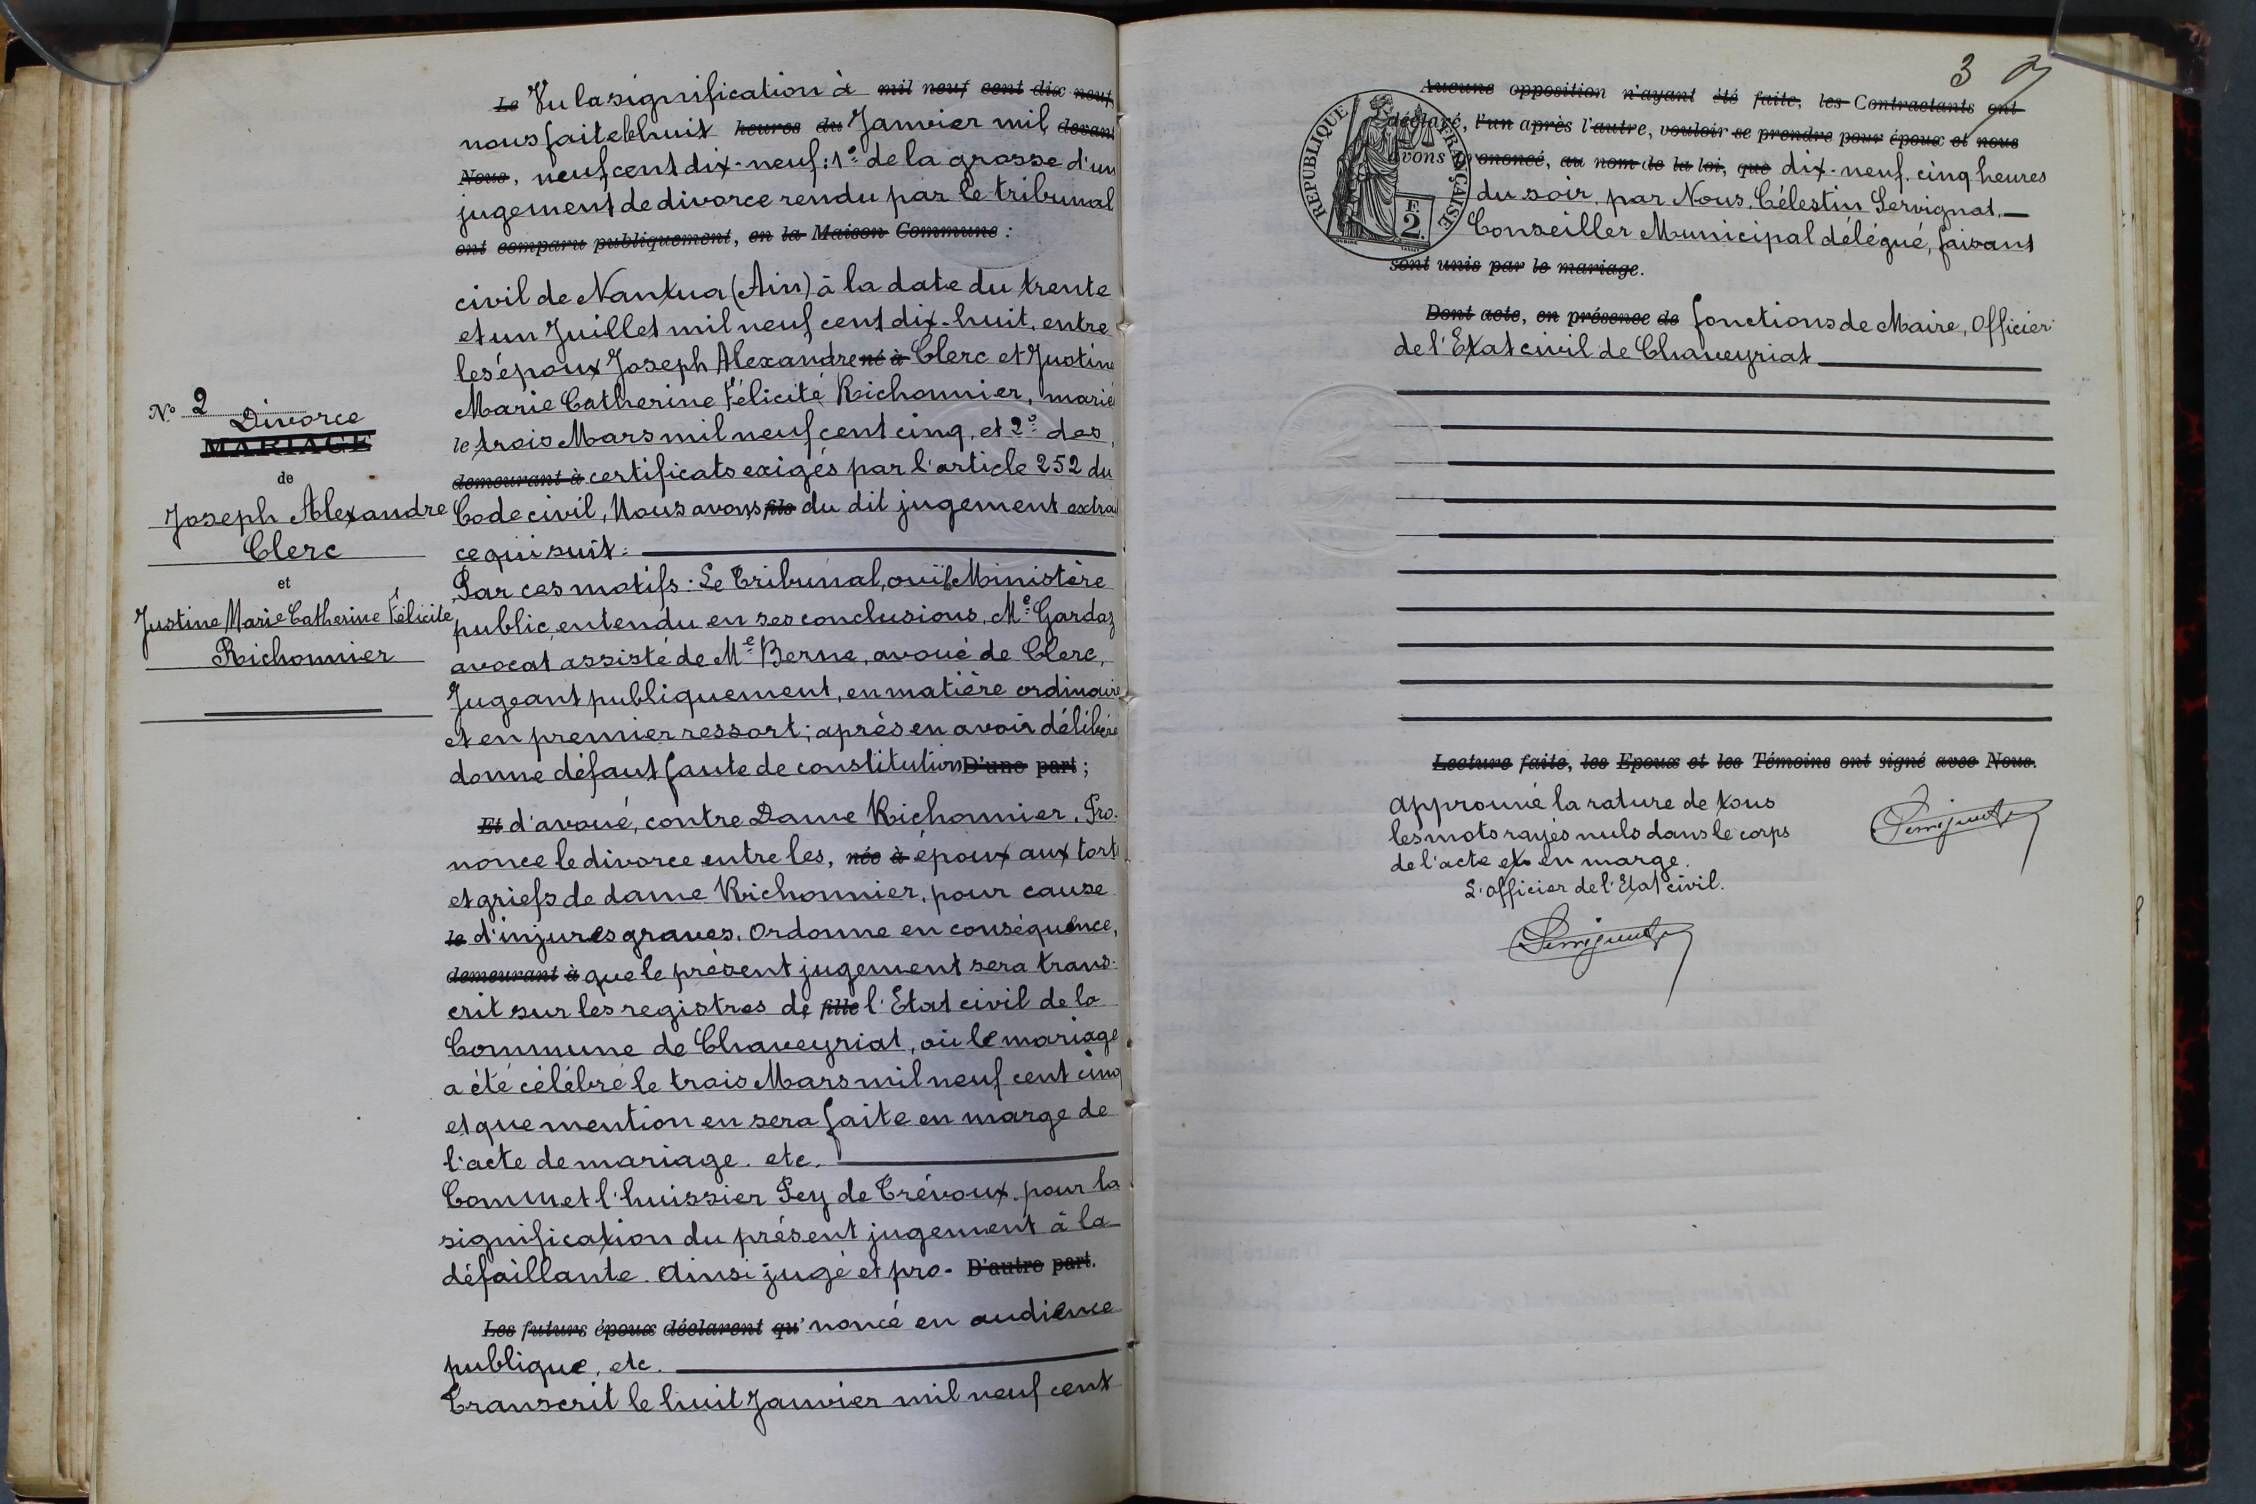 N° 2
Divorce
MARIAGE
de
Joseph Alexandre
Clerc
et
Justine Marie Catherine Félicité
Richonnier
Le Vu la signification à mil neuf cent dix neuf,
nous faite le huit heures du Janvier mil devant
Nous, neuf cent dix-neuf: 1° de la grosse d'un
jugement de divorce rendu par le tribunal
ont comparu publiquement, en la Maison Commune :
civil de Nantua (Ain) à la date du trente
et un Juillet mil neuf cent dix-huit, entre
les époux Joseph Alexandre né à Clerc et Justine
Marie Catherine Félicité Richonnier, marié
le trois Mars mil neuf cent cinq, et 2° des
demeurant à certificats exigés par l'article 252 du
Code civil, Nous avons fils du dit jugement extrai
ce qui suit:
Par ces motifs: Le Tribunal, ouï le Ministère
public entendu en ses conclusions, Me Gardaz
avocat assisté de Me Berne, avoué de Clerc,
Jugeant publiquement, en matière ordinaire
et en premier ressort; après en avoir délibéré
donne défaut faute de constitution D'une part ;
Et d'avoué, contre Dame Richonnier. Pro-
nonce le divorce entre les, née à époux aux torts
et griefs de dame Richonnier, pour cause
le d'injures graves. Ordonne en conséquence,
demeurant à que le présent jugement sera trans-
crit sur les registres de fille l'Etat civil de la
Commune de Chaveyriat, où le mariage
a été célébré le trois Mars mil neuf cent cinq
et que mention en sera faite en marge de
l'acte de mariage. etc.
Commet l'huissier Pey de Trévoux, pour la
signification du présent jugement à la
défaillante. Ainsi jugé et pro- D'autre part.
Les futurs époux déclarent qu'noncé en audience
publique, etc.
Transcrit le huit Janvier mil neuf cent
3
Aucune opposition n'ayant été faite, les Contractants ont
déclaré, l'un après l'autre, vouloir se prendre pour époux et nous
avons prononcé, au nom de la loi, que dix-neuf. cinq heures
du soir, par Nous, Célestin Servignat,
Conseiller Municipal délégué, faisant
sont unis par le mariage.
RÉPUBLIQUE FRANÇAISE
F.
2.
Dont acte, en présence de fonctions de Maire, Officier
de l'Etat civil de Chaveyriat
Lecture faite, les Epoux et les Témoins ont signé avec Nous.
Approuvé la rature de tous
les mots rayés nuls dans le corps
de l'acte et en marge.
L'officier de l'Etat civil.
Servignat
Servignat